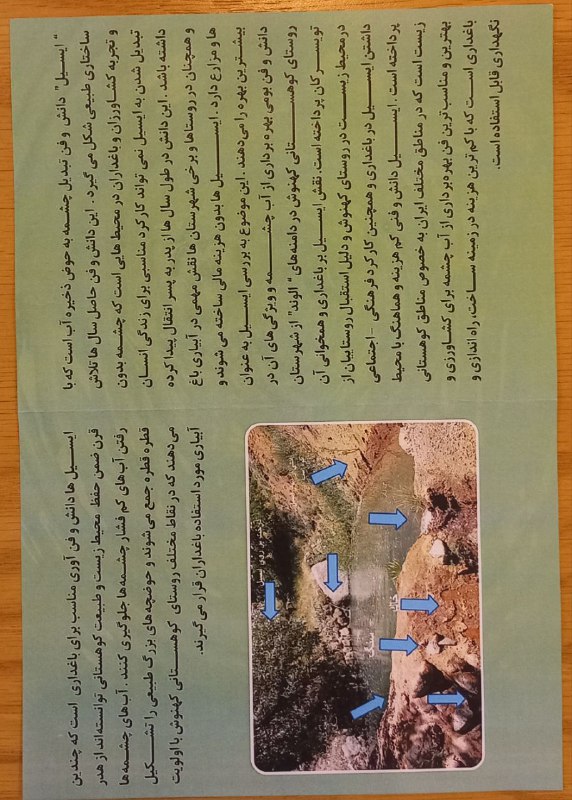 " ایسیل" دانش و فن تبدیل چشمه به حوض ذخیره آب است که با
ساختاری طبیعی شکل می گیرد . این دانش و فن حاصل سال ها تلاش
و تجربه کشاورزان و باغداران در محیط هایی است که چشمه بدون
تبدیل شدن به ایسیل نمی تواند کارکرد مناسبی برای زندگی انسان
داشته باشد . این دانش در طول سال ها از پدر به پسر انتقال پیدا کرده
و همچنان در روستاها و برخی شهرستان ها نقش مهمی در آبیاری باغ
ها و مزارع دارد . ایسیل ها بدون هزینه مالی ساخته می شوند و
بیشترین بهره را می‌دهند . این موضوع به بررسی ایسیل به عنوان
دانش و فن بومی بهره برداری از آب چشمه و ویژگی های آن در
روستای کوهستانی کهنوش در دامنه‌های " الوند" از شهرستان
تویسرکان پرداخته است. نقش ایسیل بر باغداری و همخوانی آن
در محیط زیست در روستای کهنوش و دلیل استقبال روستاییان از
داشتن ایسیل در باغداری و همچنین کارکرد فرهنگی – اجتماعی
پرداخته است . ایسیل دانش و فنی کم هزینه و هماهنگ با محیط
زیست است که در مناطق مختلف ایران به خصوص مناطق کوهستانی
بهترین و مناسب ترین فن بهره برداری از آب چشمه برای کشاورزی و
باغداری است که با کم ترین هزینه در زمینه ساخت، راه اندازی و
نگهداری قابل استفاده است.
ایسیل ها دانش و فن آوری مناسب برای باغداری است که چندین
قرن ضمن حفظ محیط زیست و طبیعت کوهستانی توانسته‌اند از هدر
رفتن آب‌های کم فشار چشمه‌ها جلوگیری کنند . آب‌های چشمه‌ها
قطره قطره جمع می شوند و حوضچه‌های بزرگ طبیعی را تشکیل
می دهند که در نقاط مختلف روستای کوهستانی کهنوش با اولویت
آبیاری مورد استفاده باغداران قرار می گیرند.